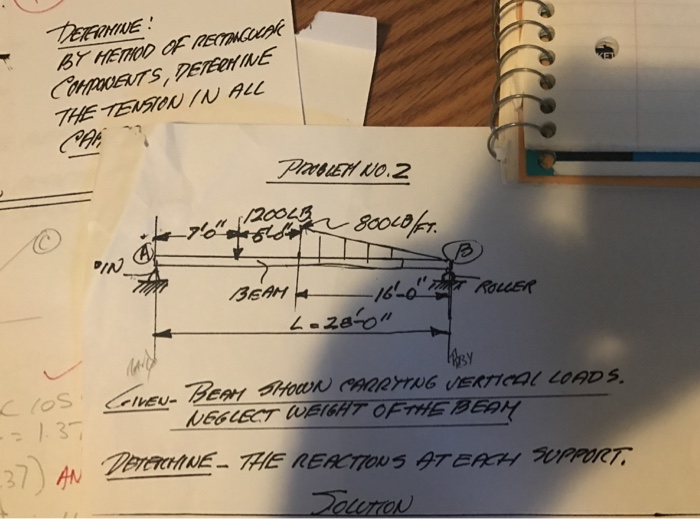 DETERMINE:
BY METHOD OF RECTANGULAR
COMPONENTS, DETERMINE
THE TENSION IN ALL
PROBLEM NO. 2
1200LB
800LB/FT.
7'-0"
A
B
PIN
BEAM
16'-0"
ROLLER
L = 28'-0"
RBY
GIVEN - BEAM SHOWN CARRYING VERTICAL LOADS.
NEGLECT WEIGHT OF THE BEAM
DETERMINE - THE REACTIONS AT EACH SUPPORT.
SOLUTION
C
COS
= 1.37
37) AN